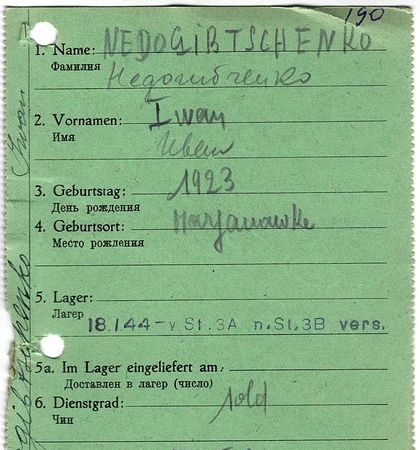 190
1. Name: NEDOGIBTSCHENKO
Фамилия Недогибченко
2. Vornamen: Iwan
Имя Иван
3. Geburtstag: 1923
День рождения
4. Geburtsort: Marjanowke
Место рождения
5. Lager:
Лагер 18.1.44-v.St.3A n.St.3B vers.
5a. Im Lager eingeliefert am:
Доставлен в лагер (число)
6. Dienstgrad: sold
Чин
Iwan